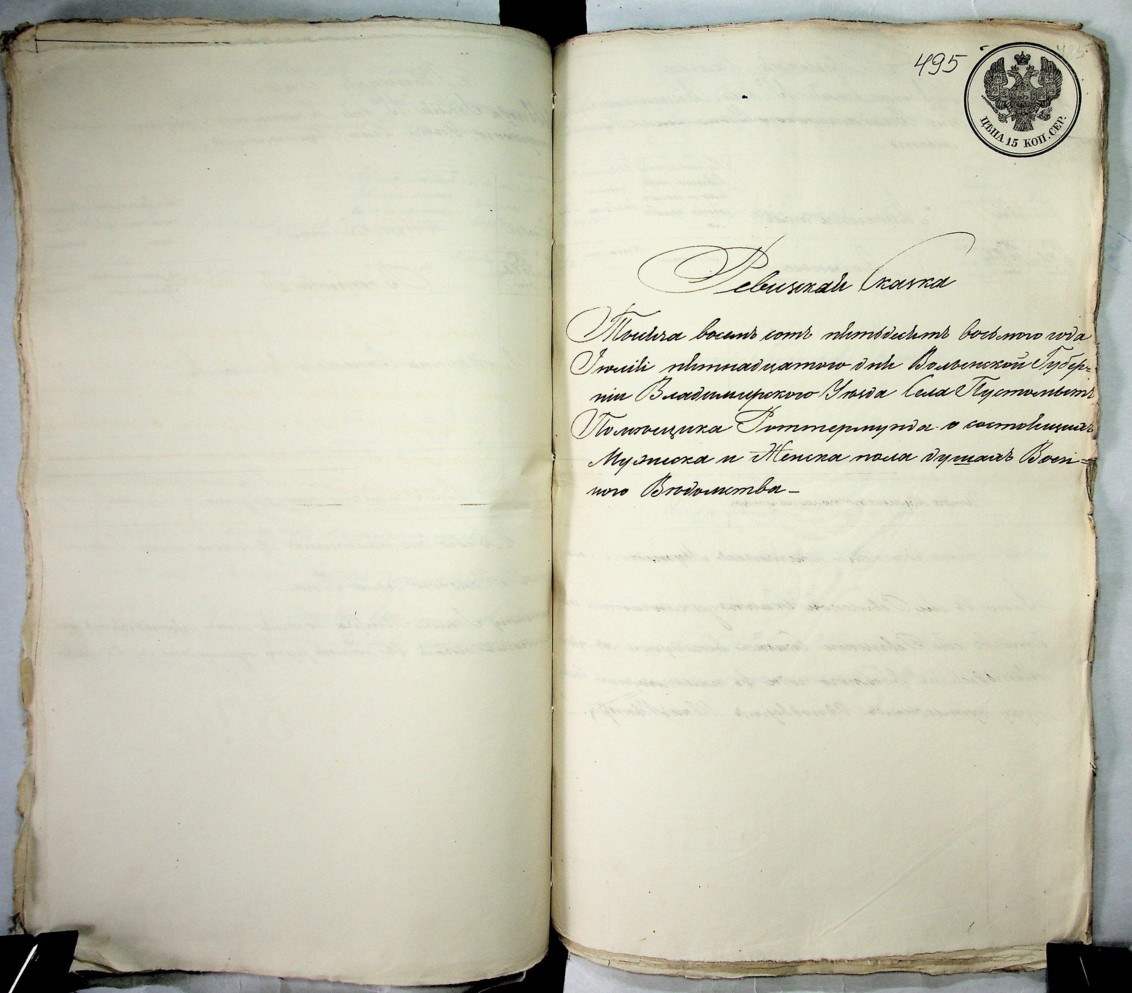 495
ЦѢНА 15 КОП. СЕР.
Ревизкая Сказка
Тысяча восемъ сотъ пятьдесятъ восьмого года
Іюля пятнадцатого дня Волынской Губер-
ніи Владимирского Уезда Села Пустомытъ
Помѣщика Роттермунда о состоящихъ
Мужеска и Женска пола душахъ Воен=
ного Вѣдомства –